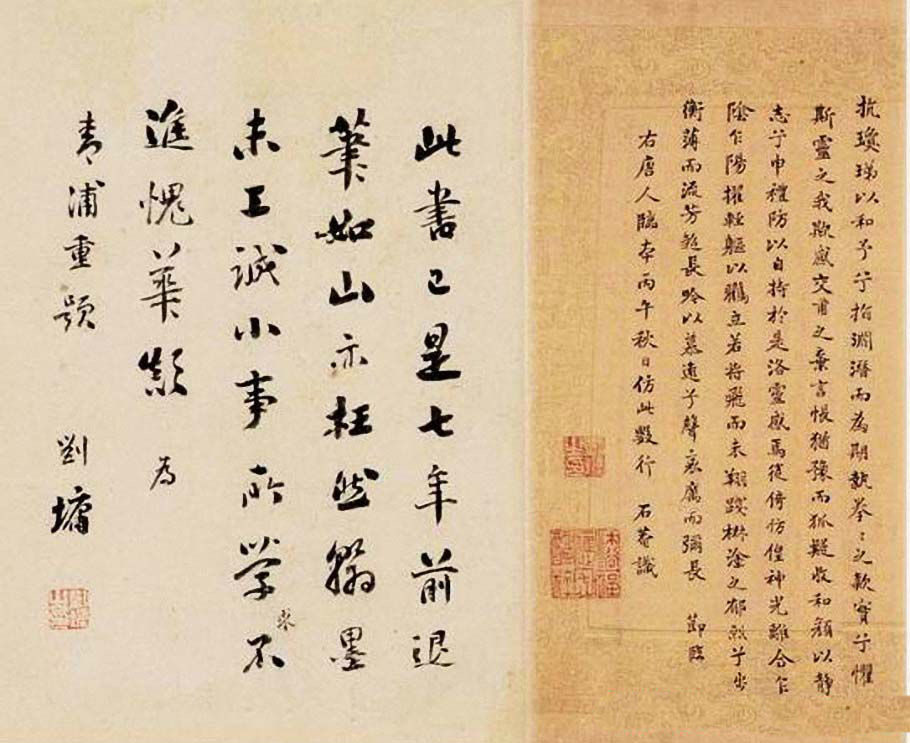 抗瓊珶以和予兮指淵潛而為期執拳〻之款實兮懼
斯靈之我欺感交甫之棄言悵猶豫而狐疑收和顏以靜
志兮申禮防以自持於是洛靈感焉徙倚仿徨神光離合乍
陰乍陽擢輕軀以鶴立若將飛而未翔踐椒塗之郁烈兮步
衡薄而流芳超長吟以慕遠兮聲哀厲而彌長 節臨
右唐人臨本丙午秋日仿此數行 石菴識
此書已是七年前退
筆如山亦枉然翰墨
未工誠小事所學求不
進愧華顛 為
青浦重題 劉墉